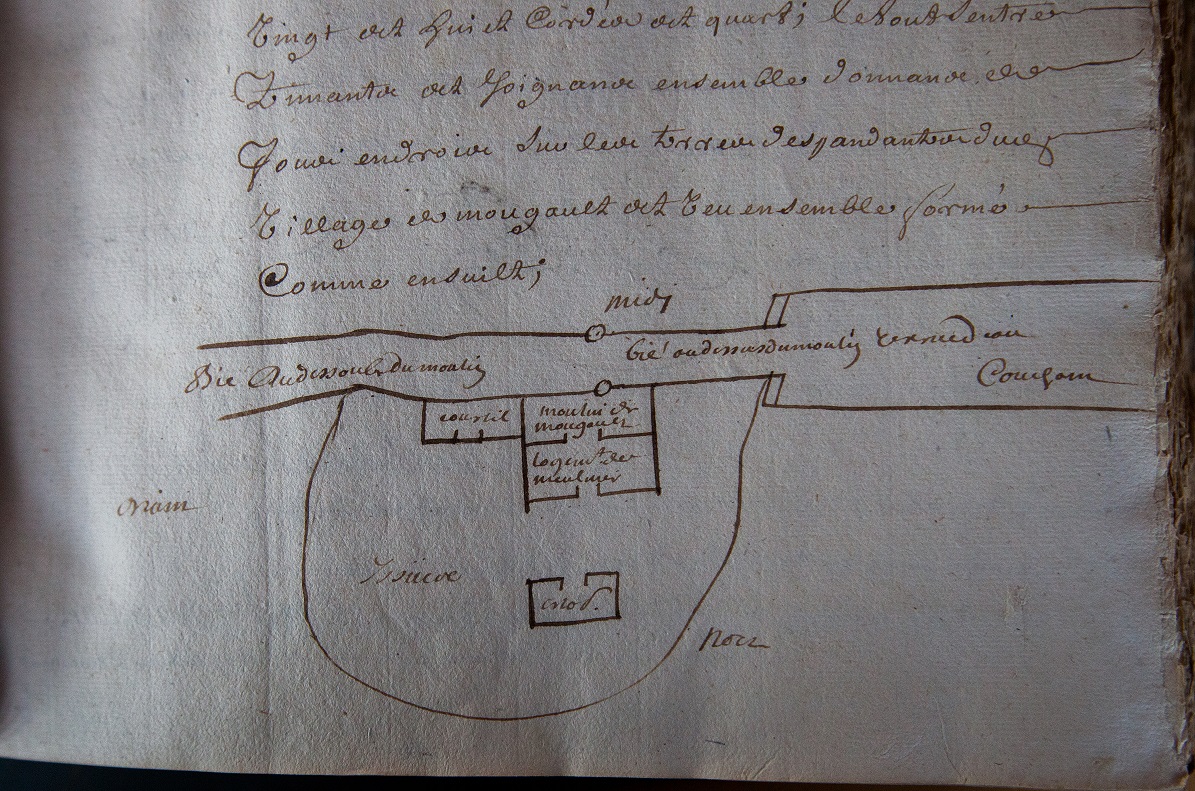 Vingt et huict Cordes et quart; le tout sentre
Tenante et Joignante ensemble donnante de
Tous endroits sur les terres despandantes du
Village de mougault et veu ensemble formé
Comme ensuilt;
midy
bié audessus du moulin
Bié Audessoubs du moulin
Couchant
courtil
moulin de
mougault
logemt. de
meulnier
Issues
Nort